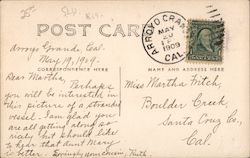 25¢
POST CARD
ARROYO GRANDE
MAY
20
1909
CAL.
Arroyo Grande, Cal.
May 19, 1909.
CORRESPONDENCE HERE
NAME AND ADDRESS HERE
Dear Martha,
Perhaps
you will be interested in
this picture of a stranded
vessel. I am glad you
are all getting along so
nicely but should like
to hear that Aunt Mary
is better. Lovingly your cousin Ruth.
Miss Martha Fitch,
Boulder Creek,
Santa Cruz Co.,
Cal.